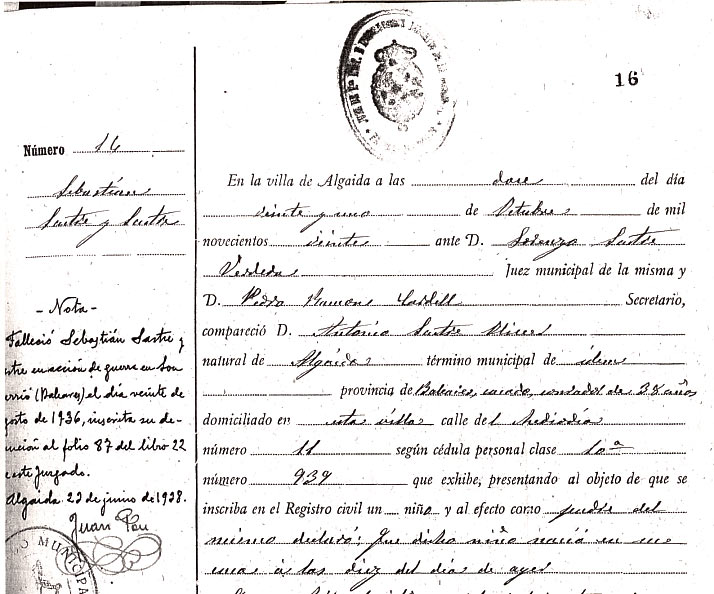 16
Número 16
Sebastián
Sastre y Sastre
- Nota -
Falleció Sebastián Sastre y
en acción de guerra en Son
(Baleares) el día veinte de
de 1936, inscrita su de-
función al folio 87 del libro 22
este Juzgado.
Algaida 23 de junio de 1938.
Juan Pou
MUNICIPA
En la villa de Algaida a las doce del día
veinte y uno de Octubre de mil
novecientos veinte ante D. Lorenzo Sastre
Verdera Juez municipal de la misma y
D. Pedro Ramons Cardell Secretario,
compareció D. Antonio Sastre Oliver
natural de Algaida término municipal de idem
provincia de Baleares, casado, de 38 años
domiciliado en esta villa calle del Mediodía
número 11 según cédula personal clase 10ª
número 939 que exhibe, presentando al objeto de que se
inscriba en el Registro civil un niño y al efecto como padre del
mismo declaró: Que dicho niño nació en su
casa a las diez del día de ayer